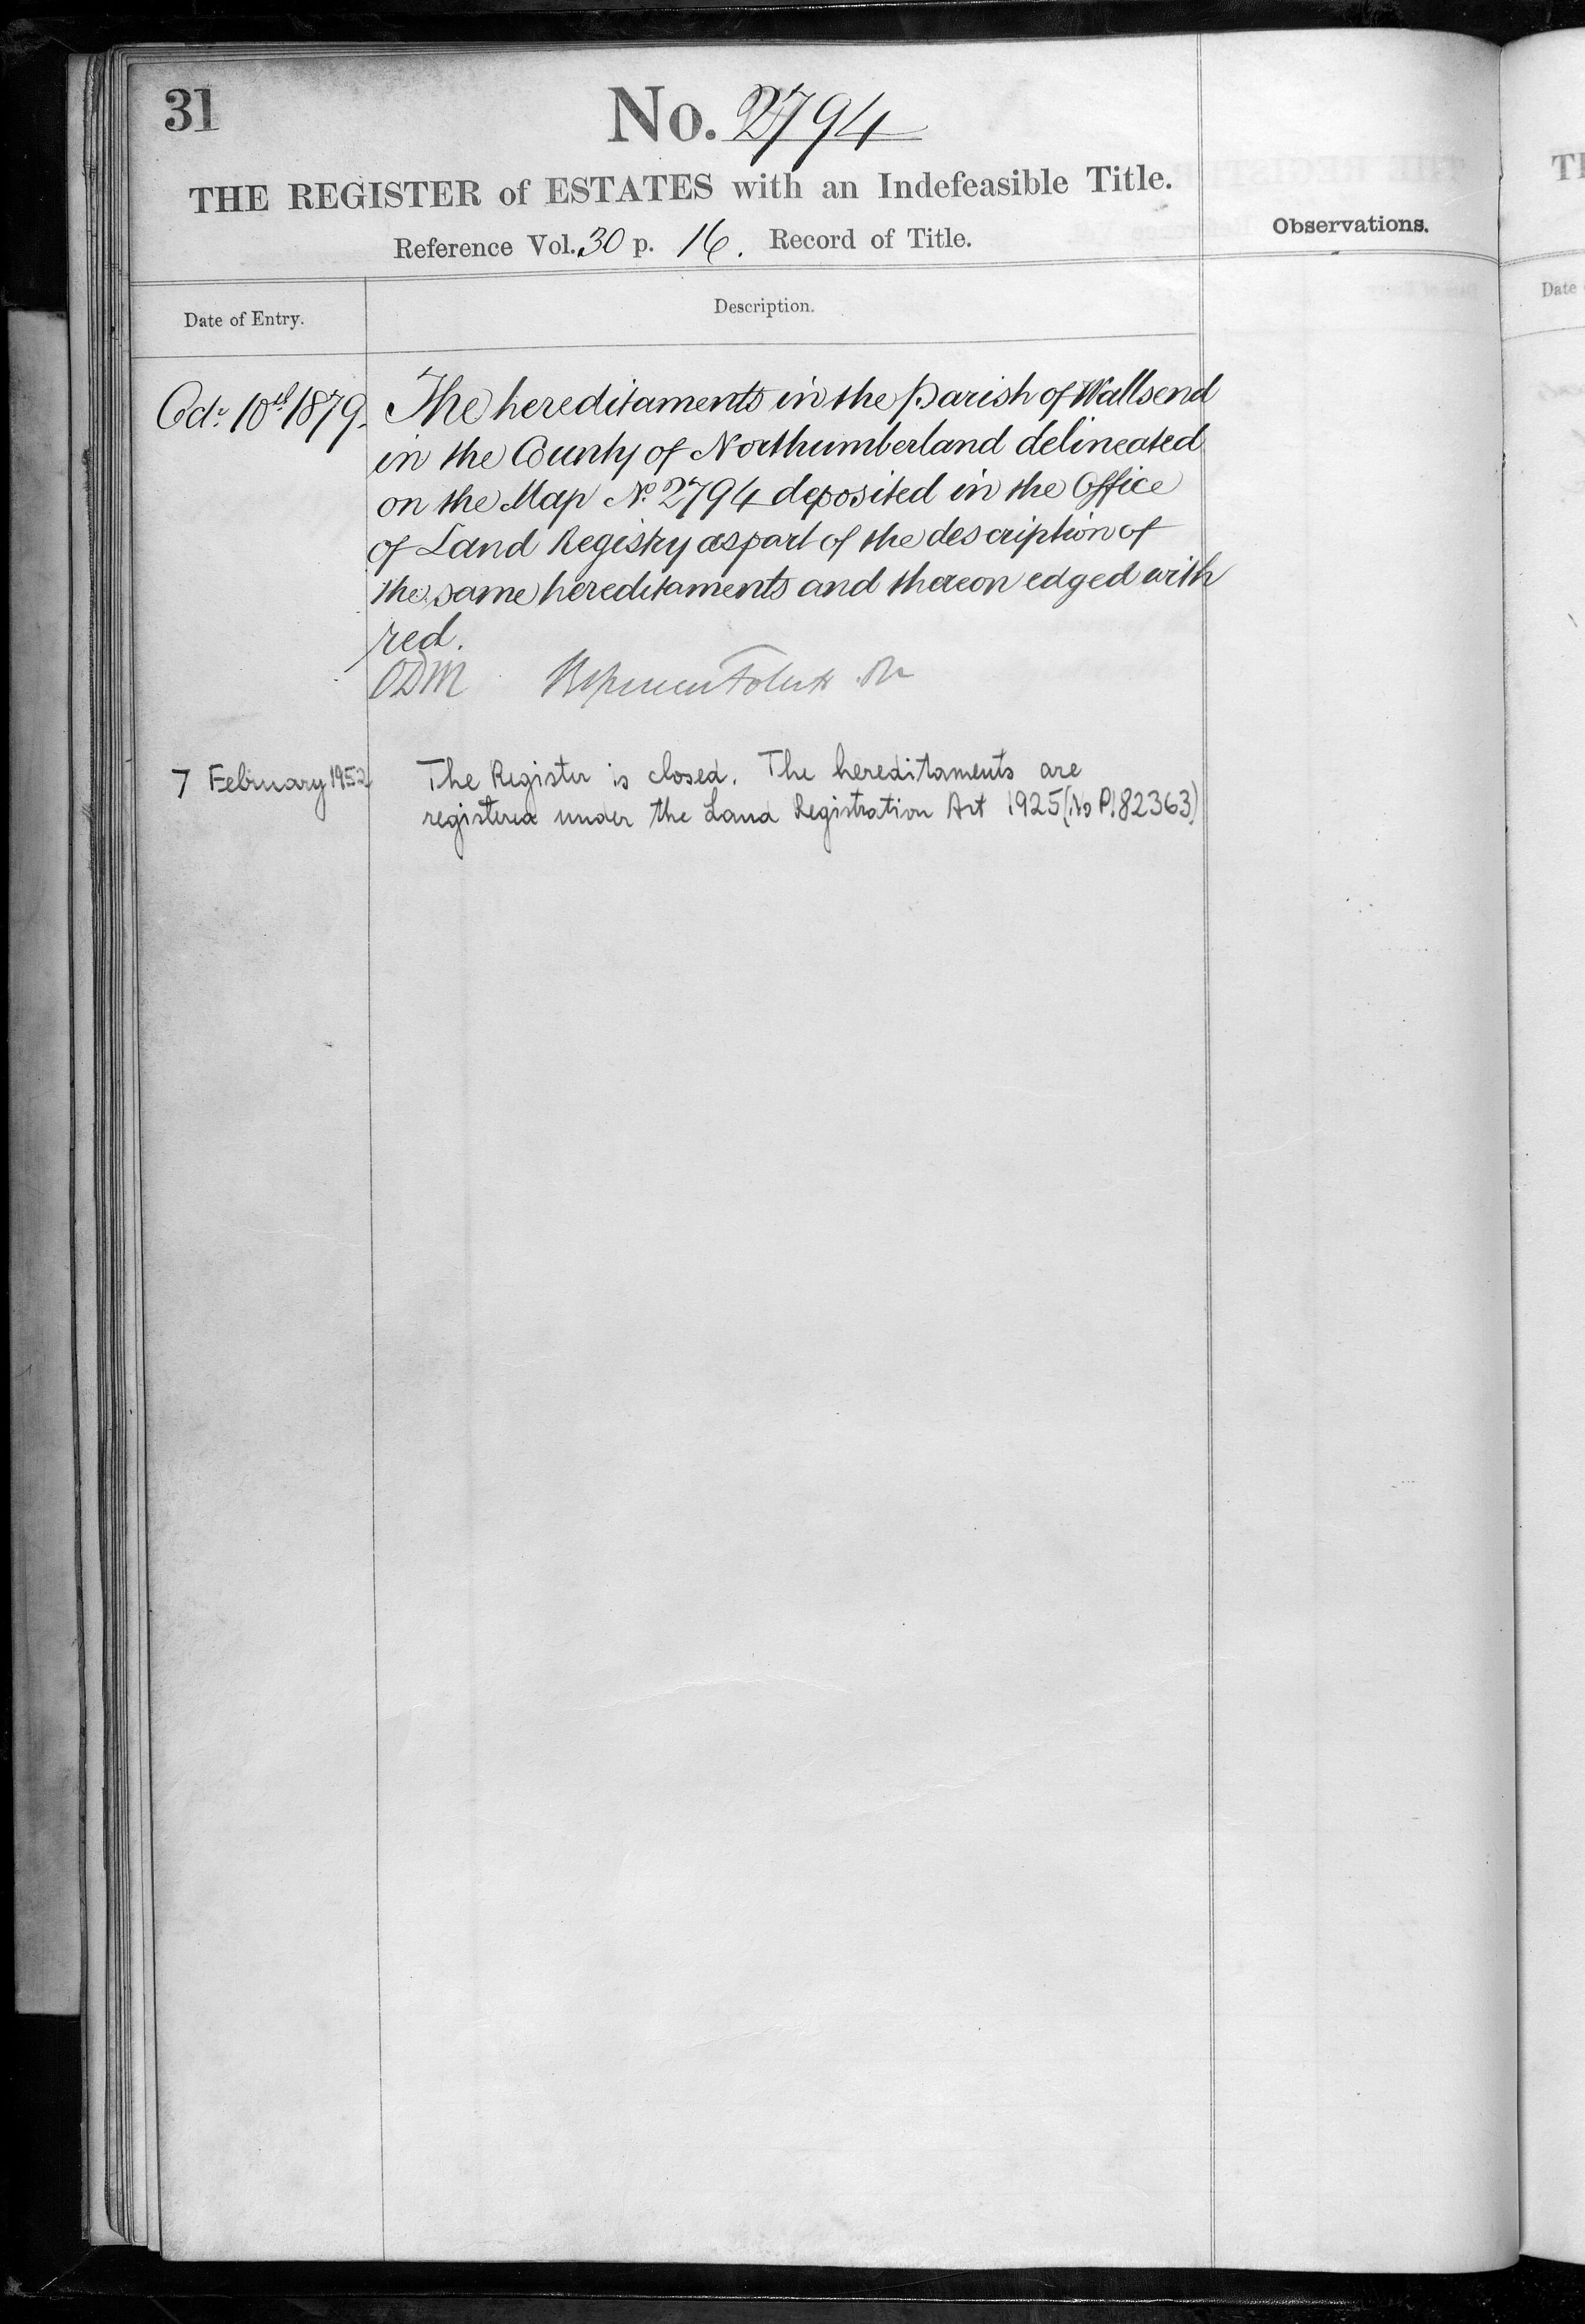 31
No. 2794
THE REGISTER of ESTATES with an Indefeasible Title.
Reference Vol. 30 p. 16. Record of Title.
Observations.
Date of Entry.
Description.
Oct. 10th 1879.
The hereditaments in the Parish of Wallsend
in the County of Northumberland delineated
on the Map No. 2794 deposited in the Office
of Land Registry as part of the description of
the same hereditaments and thereon edged with
red.
ODM
7 February 1952
The Register is closed. The hereditaments are
registered under the Land Registration Act 1925 (No P182363)
Date